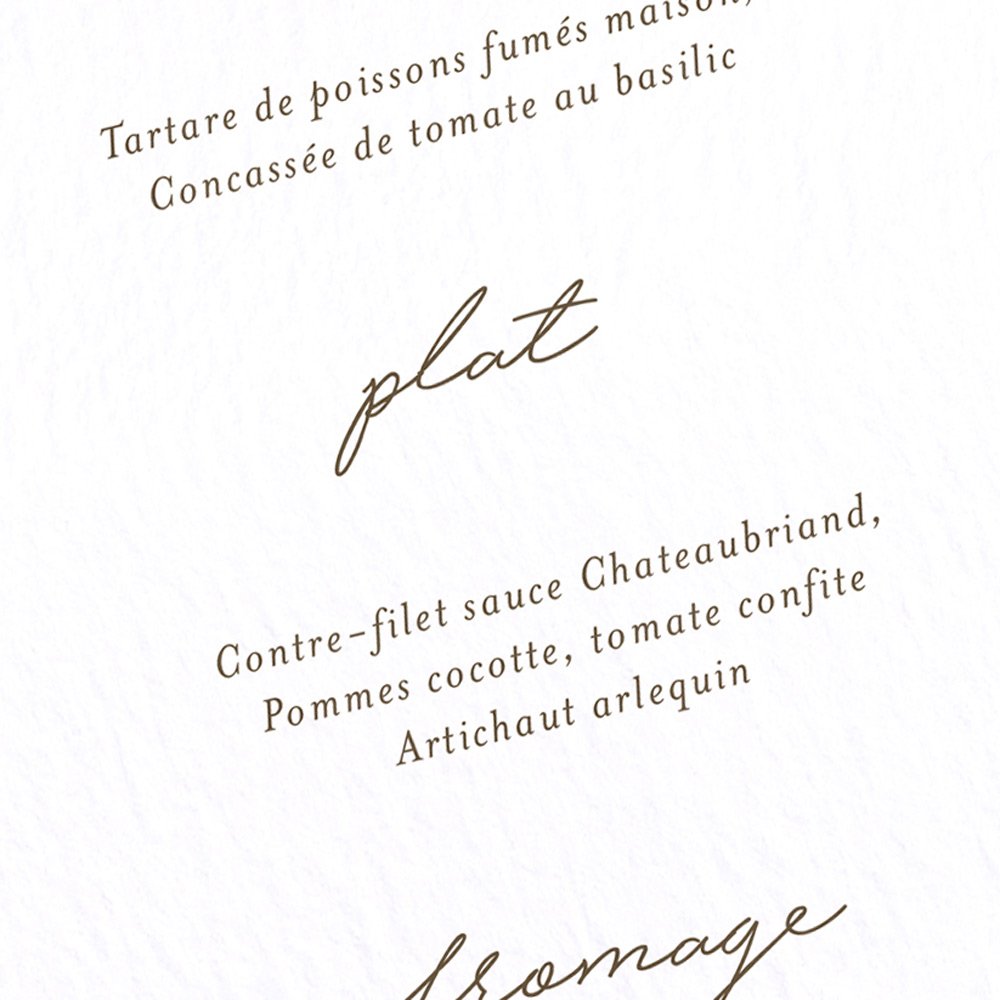 Tartare de poissons fumés maison,
Concassée de tomate au basilic
plat
Contre-filet sauce Chateaubriand,
Pommes cocotte, tomate confite
Artichaut arlequin
fromage